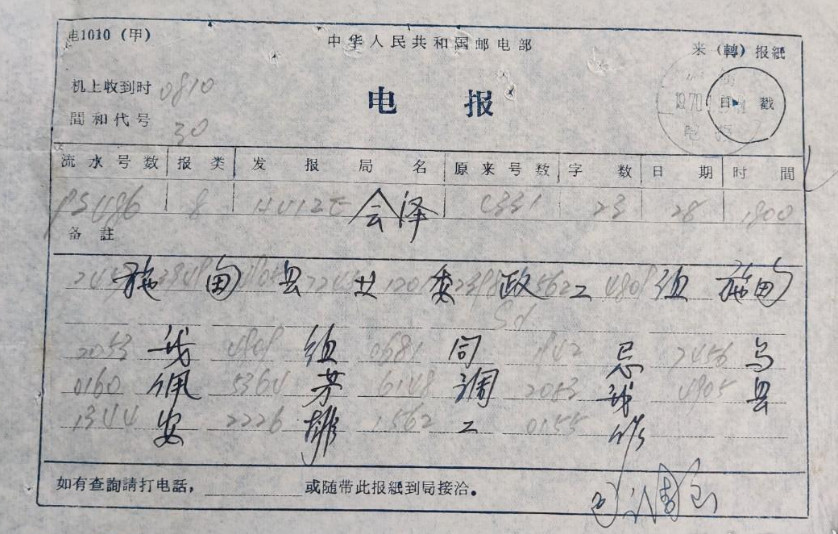 电1010（甲） 中华人民共和国邮电部 来（轉）报紙
机上收到时 0810 电 报 日 戳
間和代号 30
流水号数 报类 发报局名 原来号数 字数 日期 时間
8 会泽 23 28 1800
备註
施 甸 县 委 政 工 组 施甸
2053 我 组 0681 同 忌 2456 乌
0160 佩 5364 芳 6148 调 2083 我 4905 县
1344 安 2226 排 1562 工 0155 作
如有查詢請打电話， 或随带此报紙到局接洽。